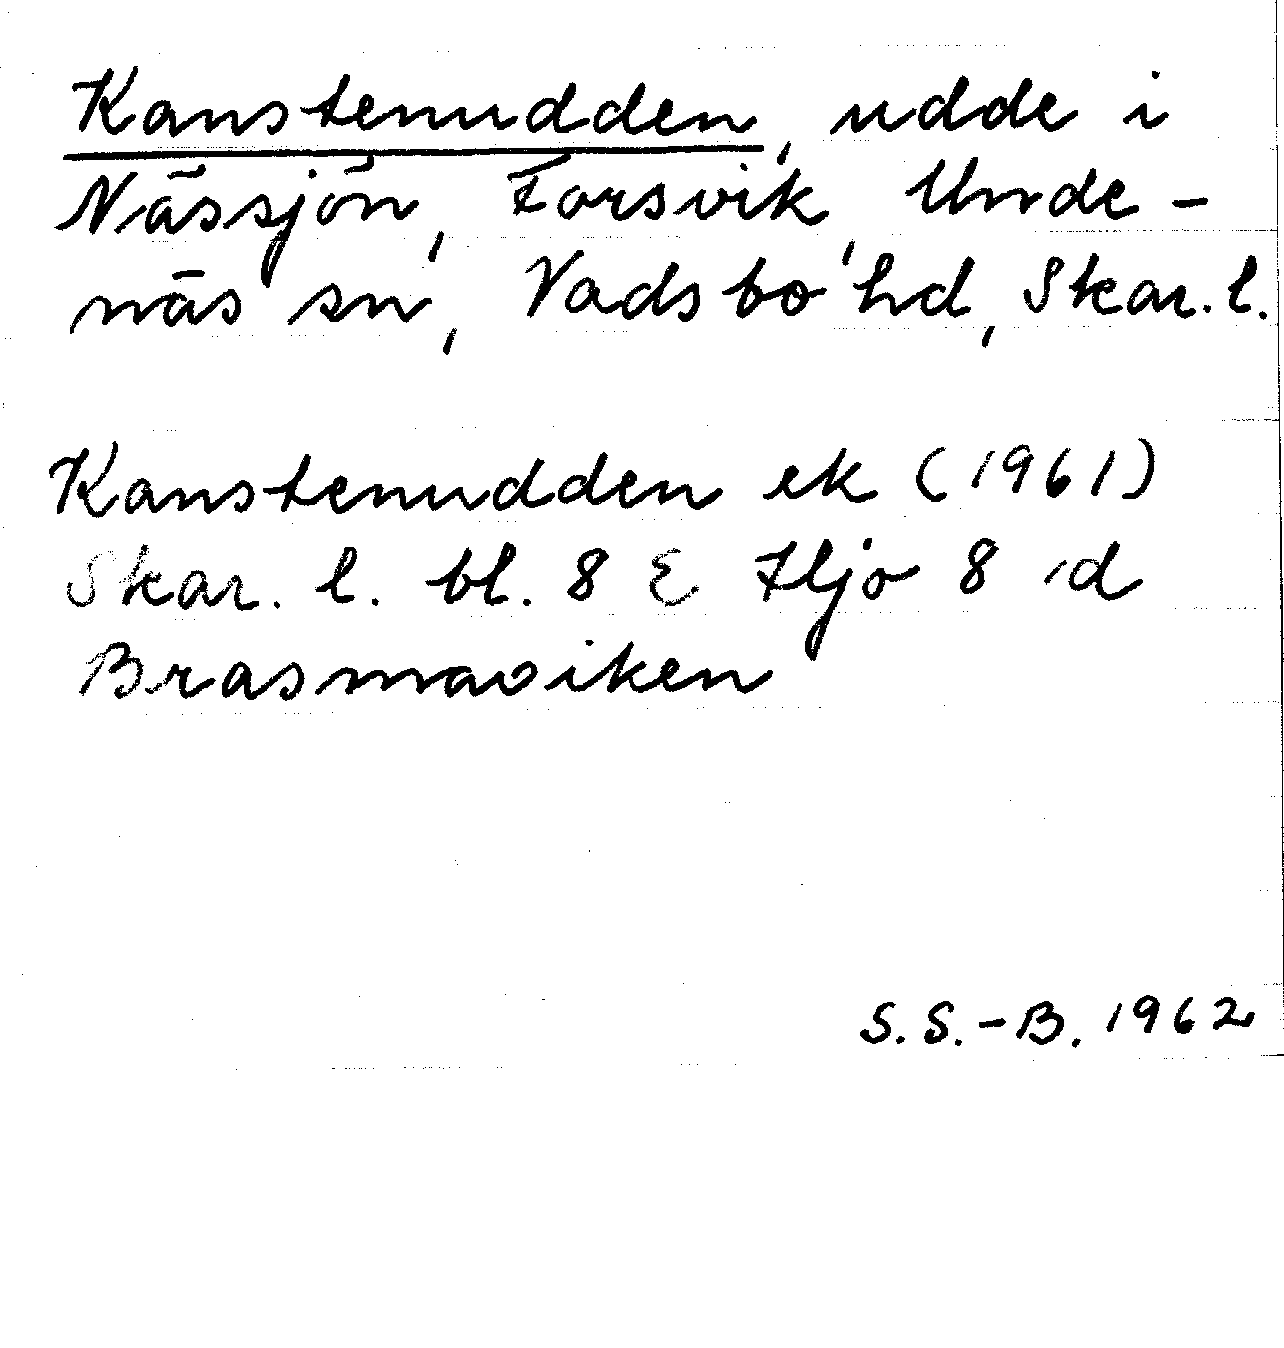 Kanstenudden, udde i
Nässjön, Forsvik, Unde-
näs sn, Vadsbo hd, Skar. l.
Kanstenudden ek (1961)
Skar. l. bl. 8 E Hjo 8 d
Brasmaviken
S. S.-B. 1962